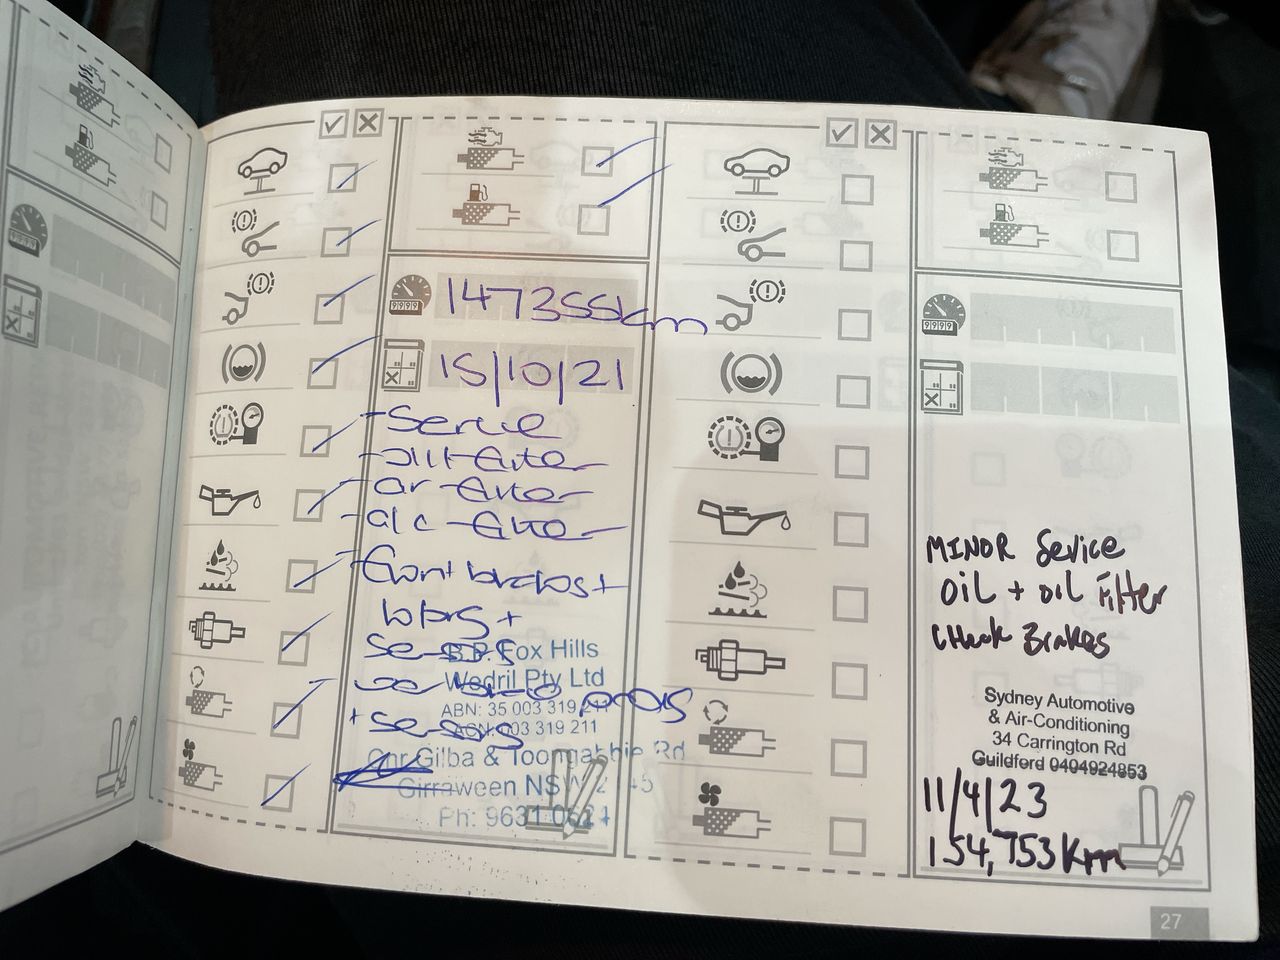 147355km
15/10/21
- Service
- oil filter
- air filter
- a/c filter
- front brakes +
+
B.P. Fox Hills
Wedril Pty Ltd
ABN: 35 003 319 211
ACN: 003 319 211
+ sensors
Cnr Gilba & Toongabbie Rd
Girraween NSW 2145
Ph: 9631 0621
MINOR Service
oil + oil Filter
Check Brakes
Sydney Automotive
& Air-Conditioning
34 Carrington Rd
Guildford 0404924853
11/4/23
154,753 Km
27